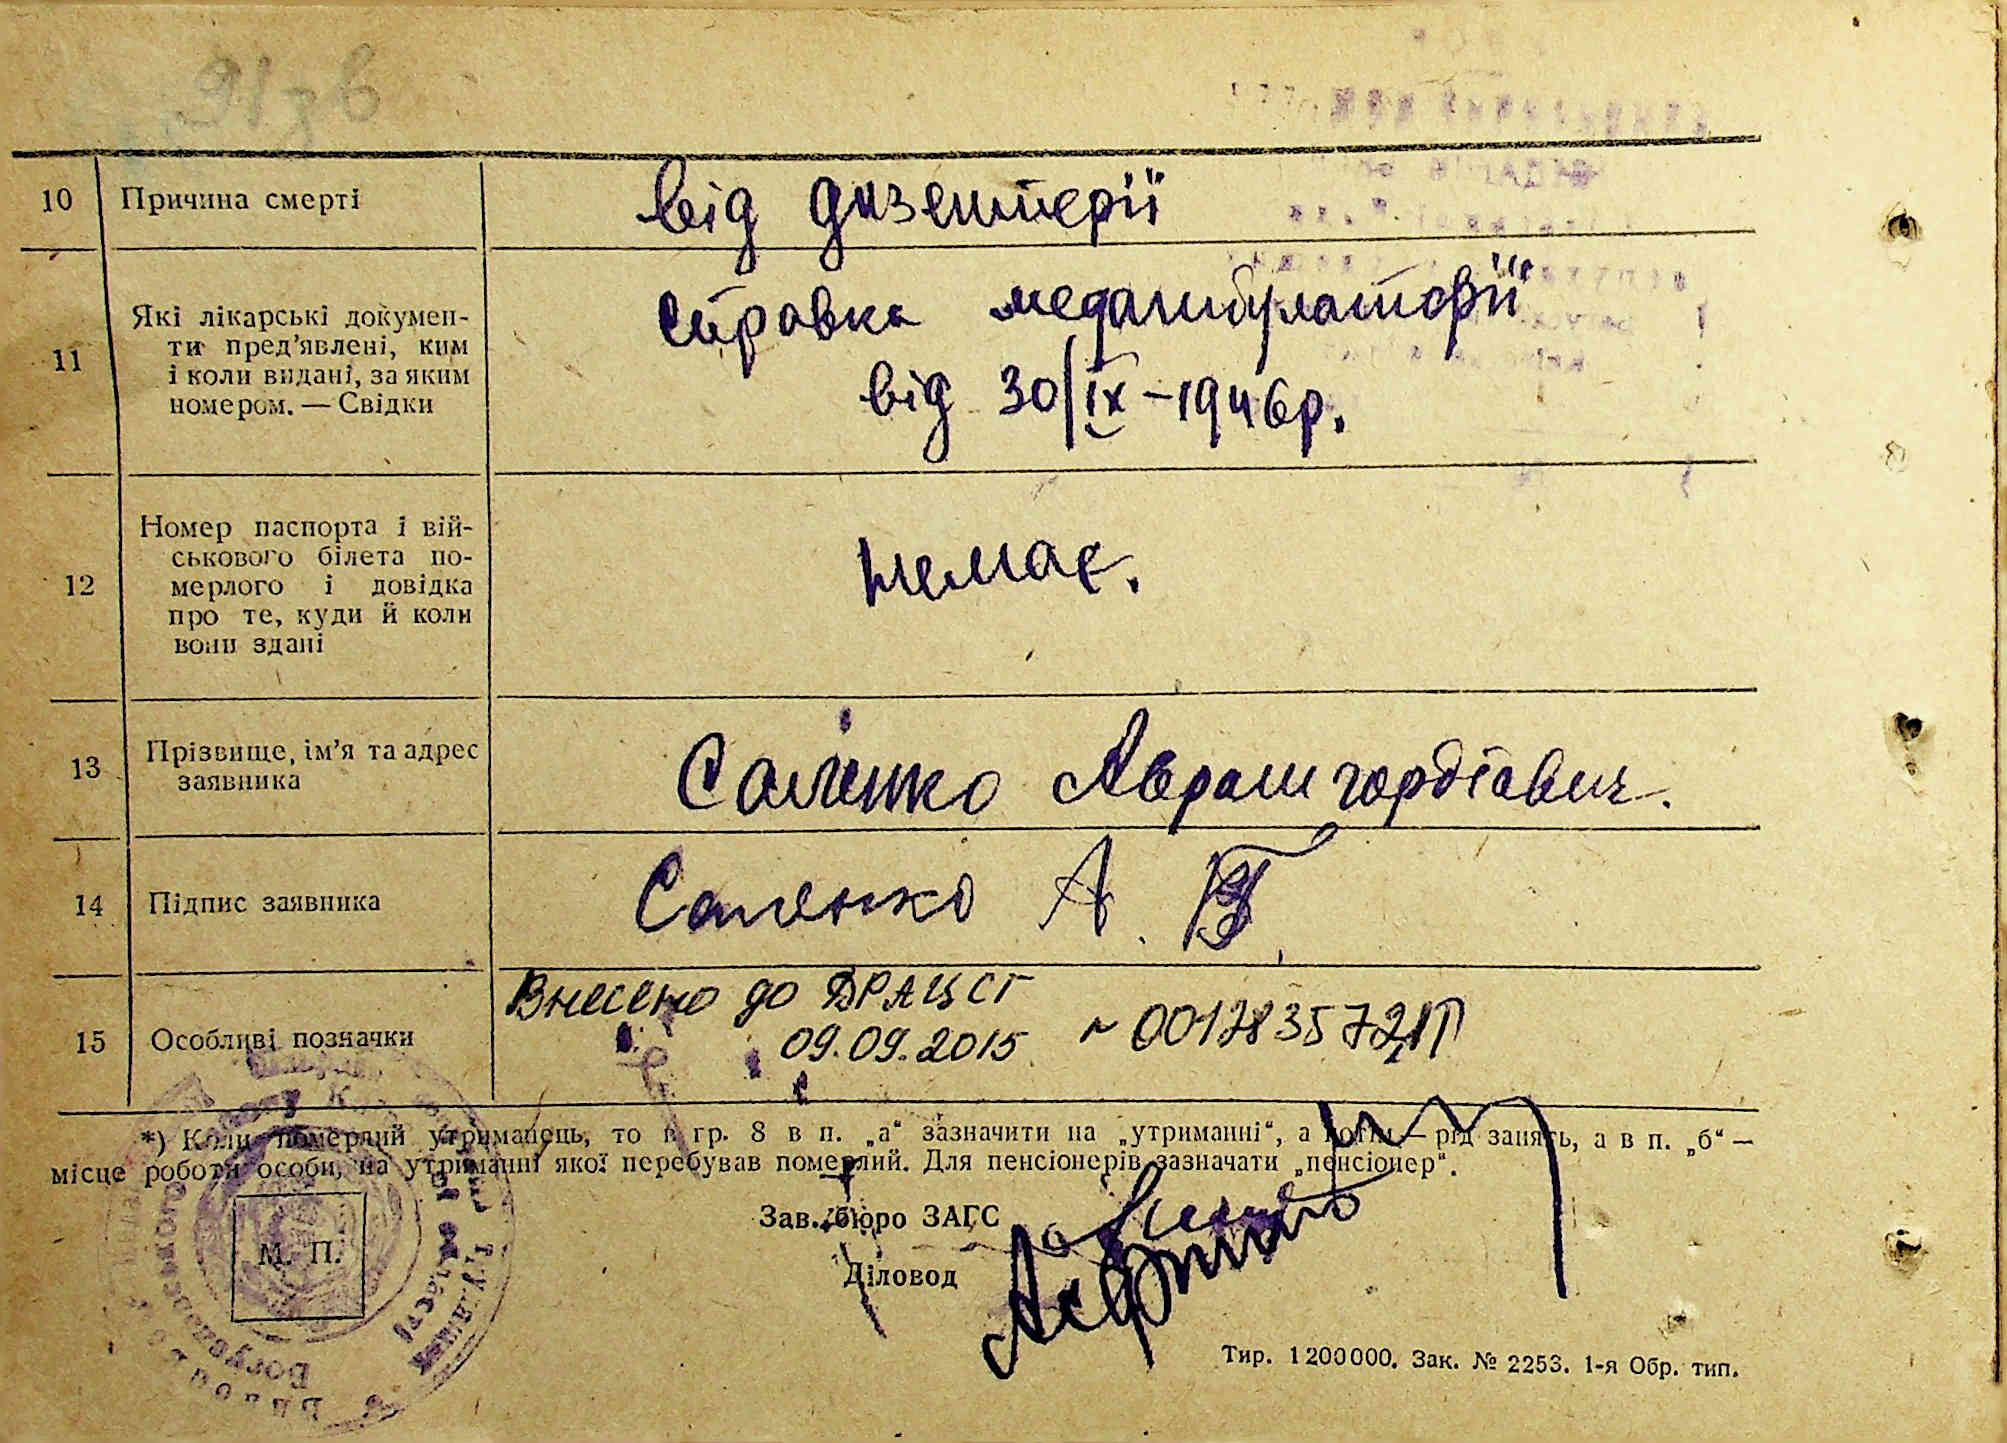 10 Причина смерті від дизентерії
11 Які лікарські докумен-
ти пред'явлені, ким
і коли видані, за яким
номером. — Свідки
справка медамбулаторії
від 30/IX-1946р.
12 Номер паспорта і вій-
ськового білета по-
мерлого і довідка
про те, куди й коли
вони здані
немає.
13 Прізвище, ім'я та адрес
заявника
Саленко Аврам гордієвич.
14 Підпис заявника Саленко А
15 Особливі позначки
Внесено до ДРАЦСГ
09.09.2015 ~ 00128357
*) Коли померлий утриманець, то в гр. 8 в п. „а“ зазначити на „утриманні“, а потім — рід занять, а в п. „б“ —
місце роботи особи, на утриманні якої перебував померлий. Для пенсіонерів зазначати „пенсіонер“.
Зав. бюро ЗАГС
Діловод
М. П.
Тир. 1200000. Зак. № 2253. 1-я Обр. тип.